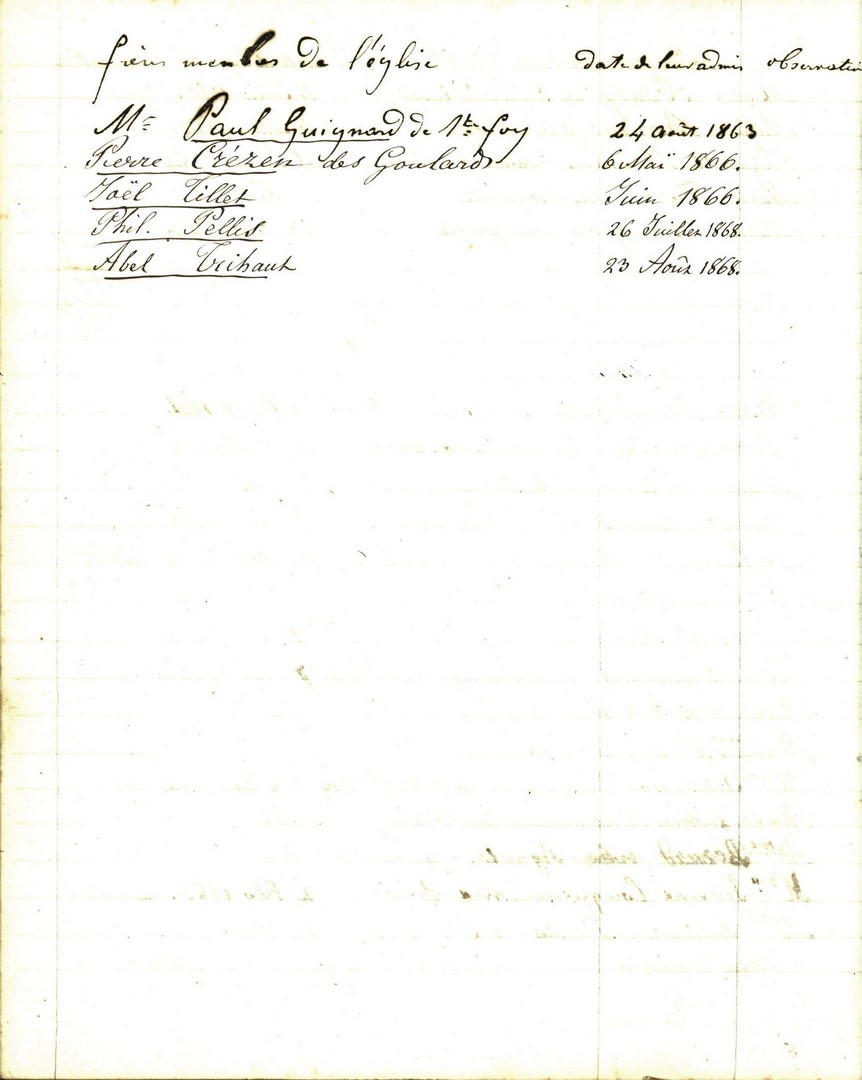 frères membres de l'église date de leur admis observation
Mr Paul Guignard de Ste foy 24 août 1863
Pierre Crézen des Goulards 6 Maï 1866.
Joël Tillet Juin 1866.
Phil. Pellis 26 Juillet 1868.
Abel Trihaut 23 Août 1868.